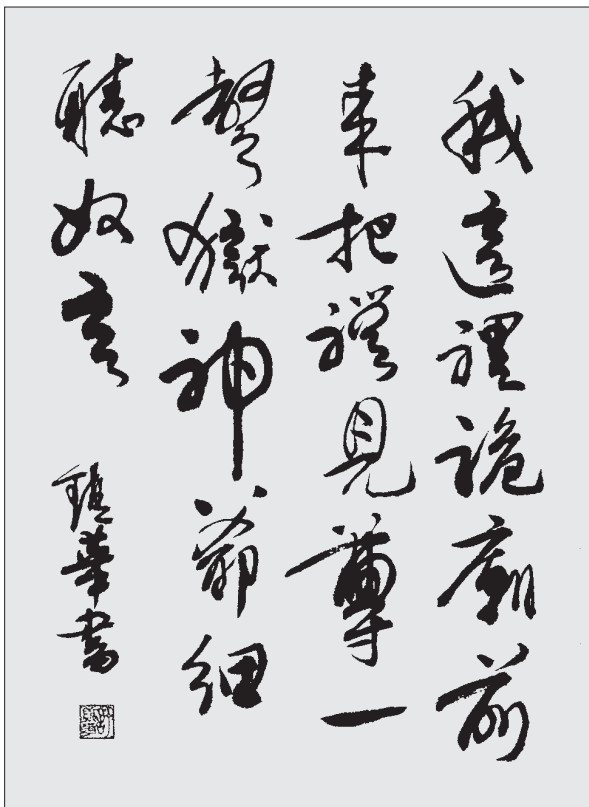 我這裡跪廟前
来把禮見尊一
聲獄神爺細
聽奴言
鎮華書